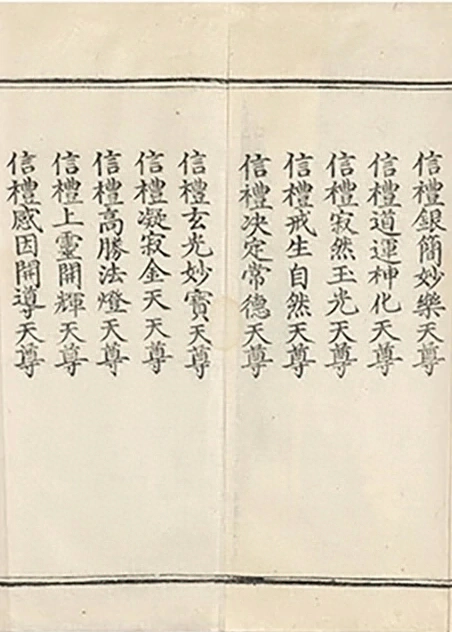 信禮銀簡妙樂天尊
信禮道運神化天尊
信禮寂然玉光天尊
信禮戒生自然天尊
信禮决定常德天尊
信禮玄光妙寳天尊
信禮凝寂金天天尊
信禮高勝法燈天尊
信禮上靈開輝天尊
信禮感因開導天尊